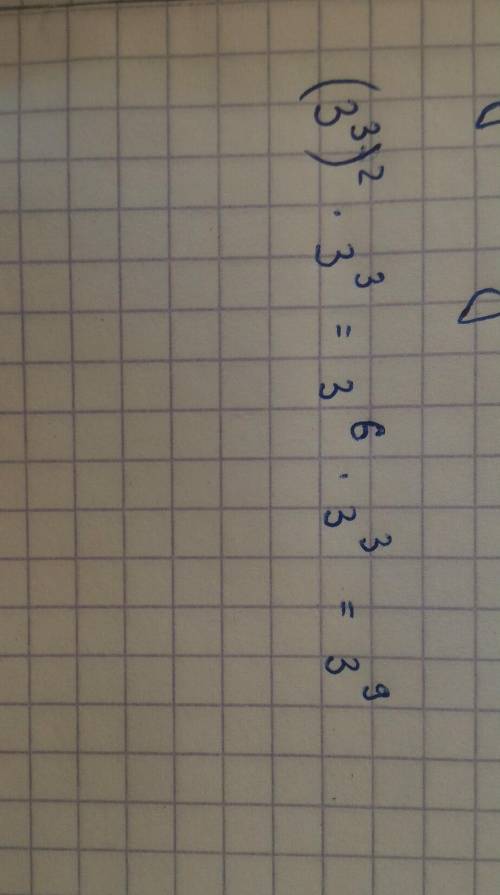 (3³)² · 3³ = 3⁶ · 3³ = 3⁹